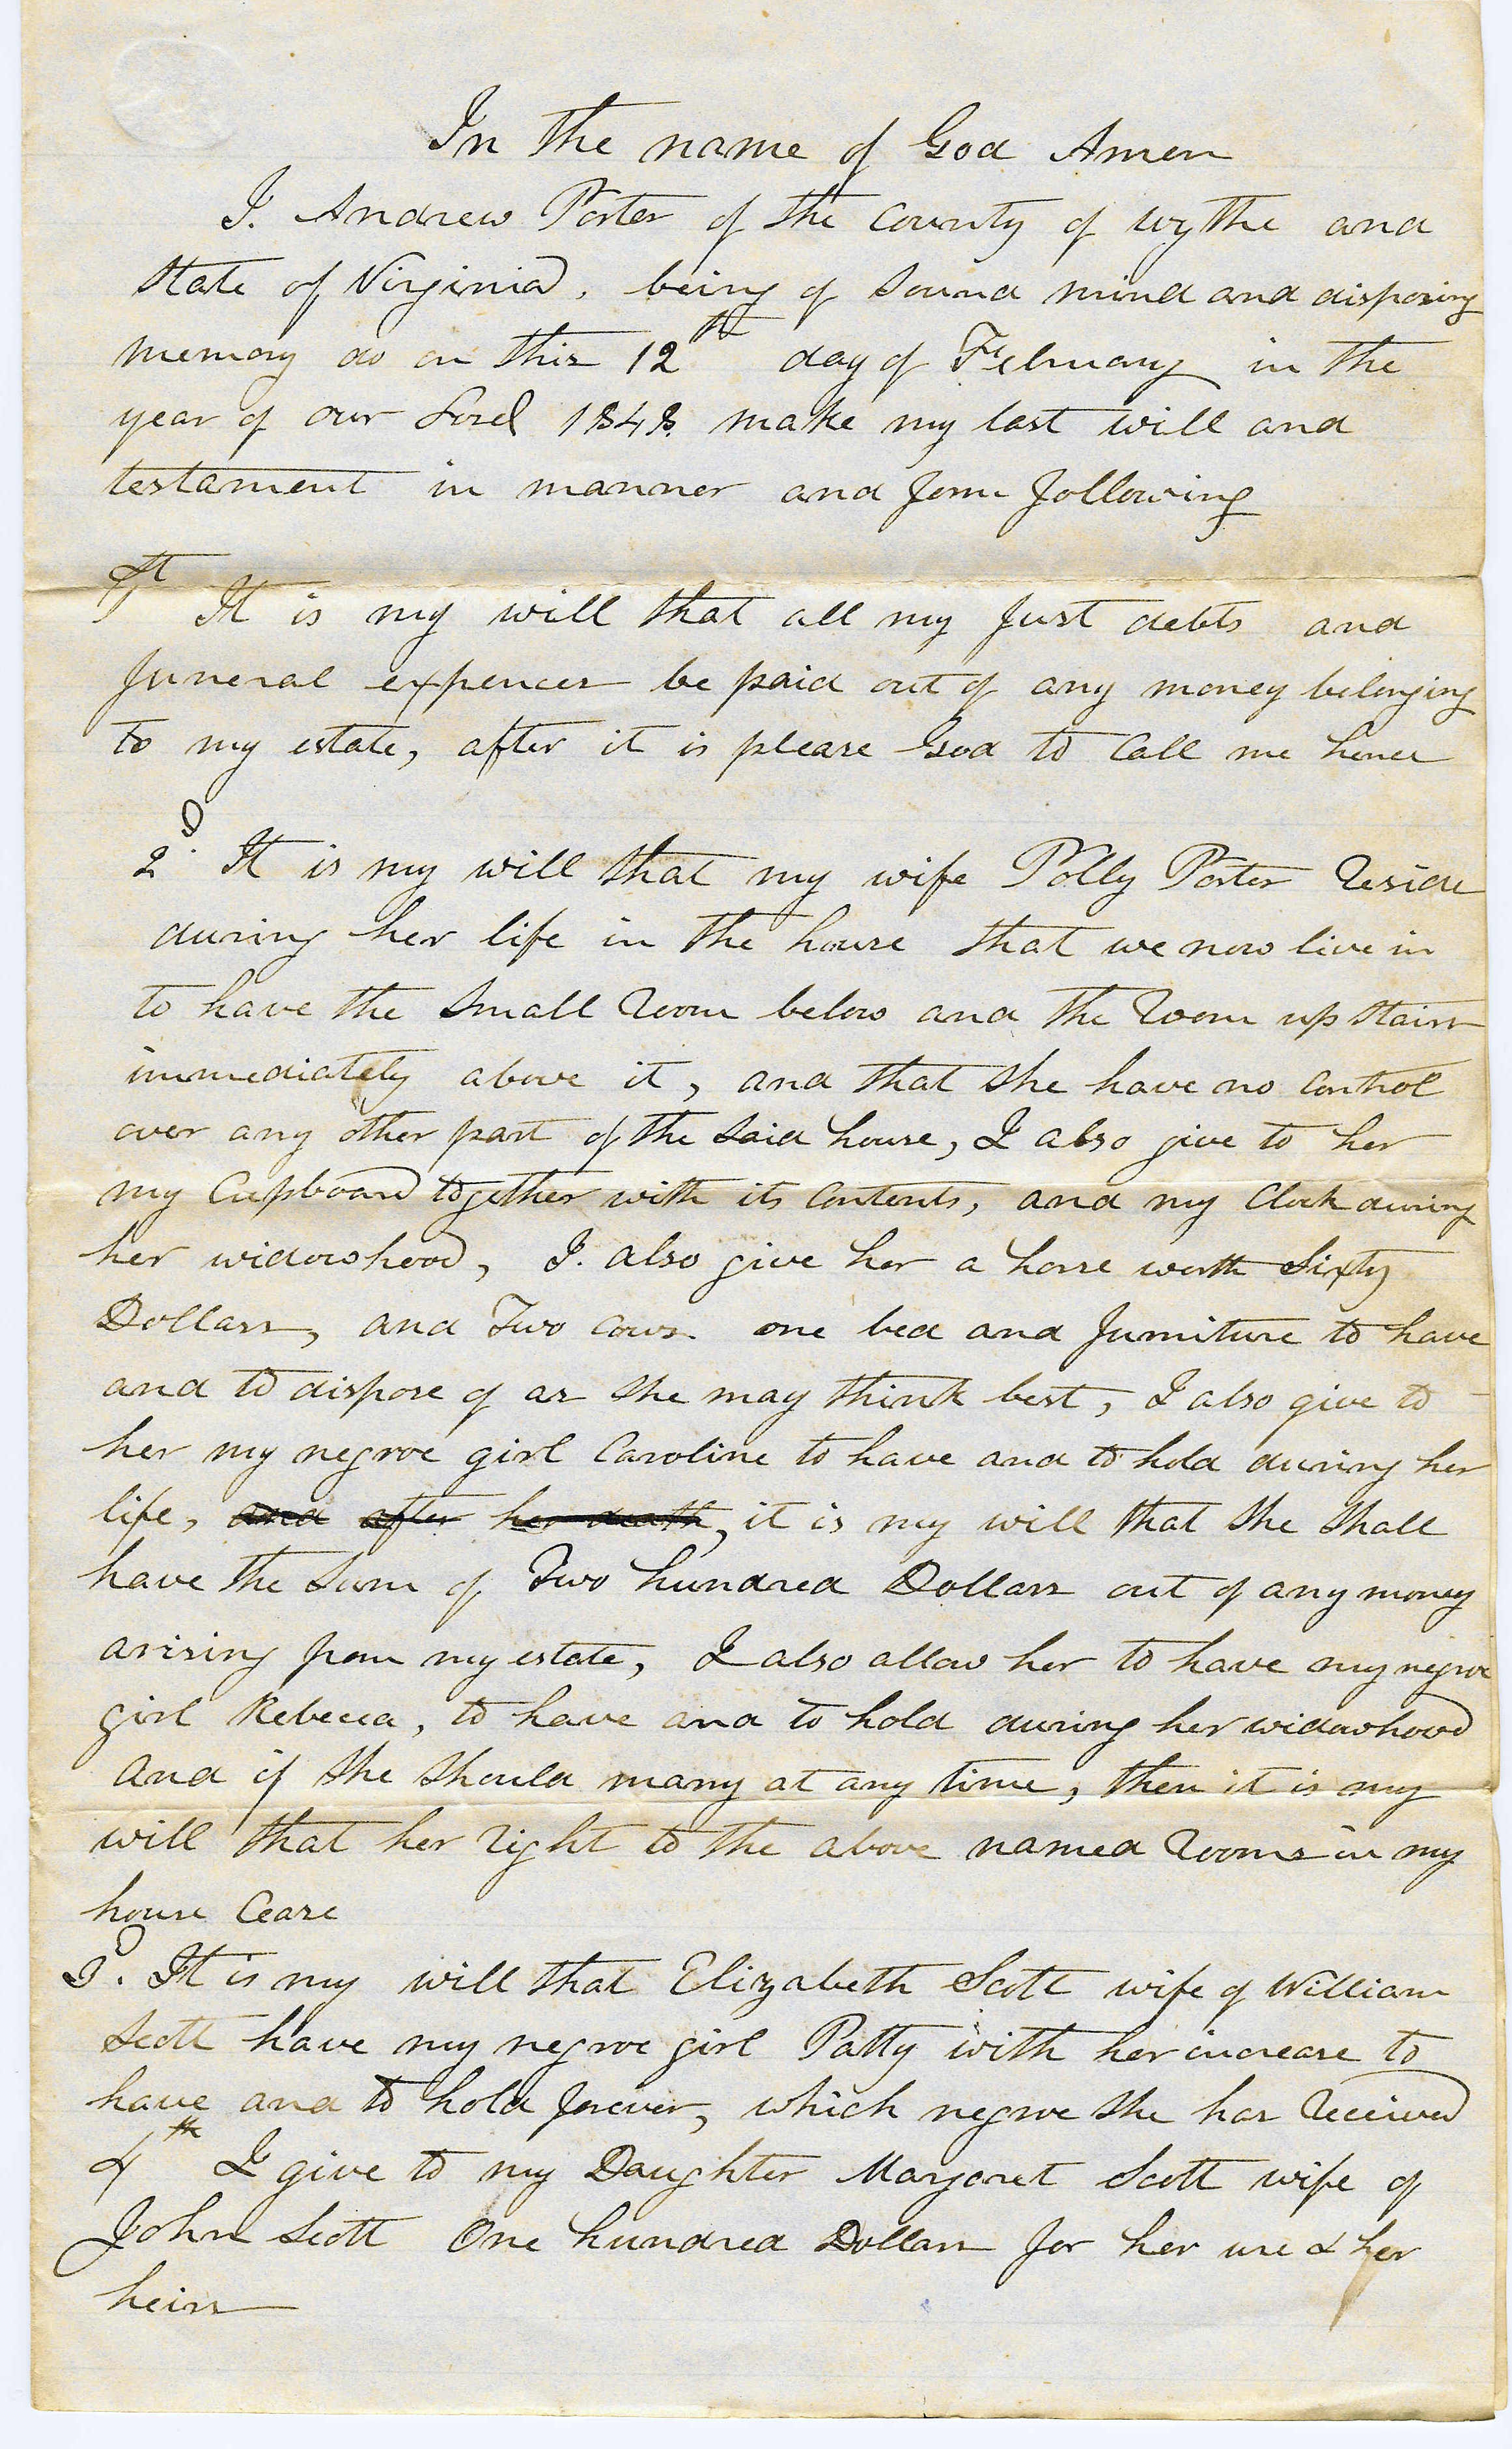 In the name of God Amen
I. Andrew Porter of the County of Wythe and
State of Virginia, being of Sound mind and disposing
memory do on this 12th day of February in the
year of our Lord 1848. make my last will and
testament in manner and form following
1st It is my will that all my just debts and
funeral expences be paid out of any money belonging
to my estate, after it is please God to Call me hence
2d. It is my will that my wife Polly Porter Reside
during her life in the house that we now live in
to have the Small Room below and the Room up Stairs
immediately above it, and that She have no Control
over any other part of the Said house, I also give to her
my Cupboard together with its Contents, and my Clock during
her widowhood, I. also give her a horse worth Sixty
Dollars, and Two Cows one bed and furniture to have
and to dispose of as She may think best, I also give to
her my negroe girl Caroline to have and to hold during her
life, and after her death, it is my will that She Shall
have the Sum of Two hundred Dollars out of any money
arising from my estate, I also allow her to have my negroe
girl Rebecca, to have and to hold during her widowhood
And if She Should marry at any time, then it is my
will that her right to the above named Rooms in my
house Cease
3d. It is my will that Elizabeth Scott wife of William
Scott have my negroe girl Patty with her increase to
have and to hold forever, which negroe She has Received
4th I give to my Daughter Margaret Scott wife of
John Scott One hundred Dollars for her use & her
heirs